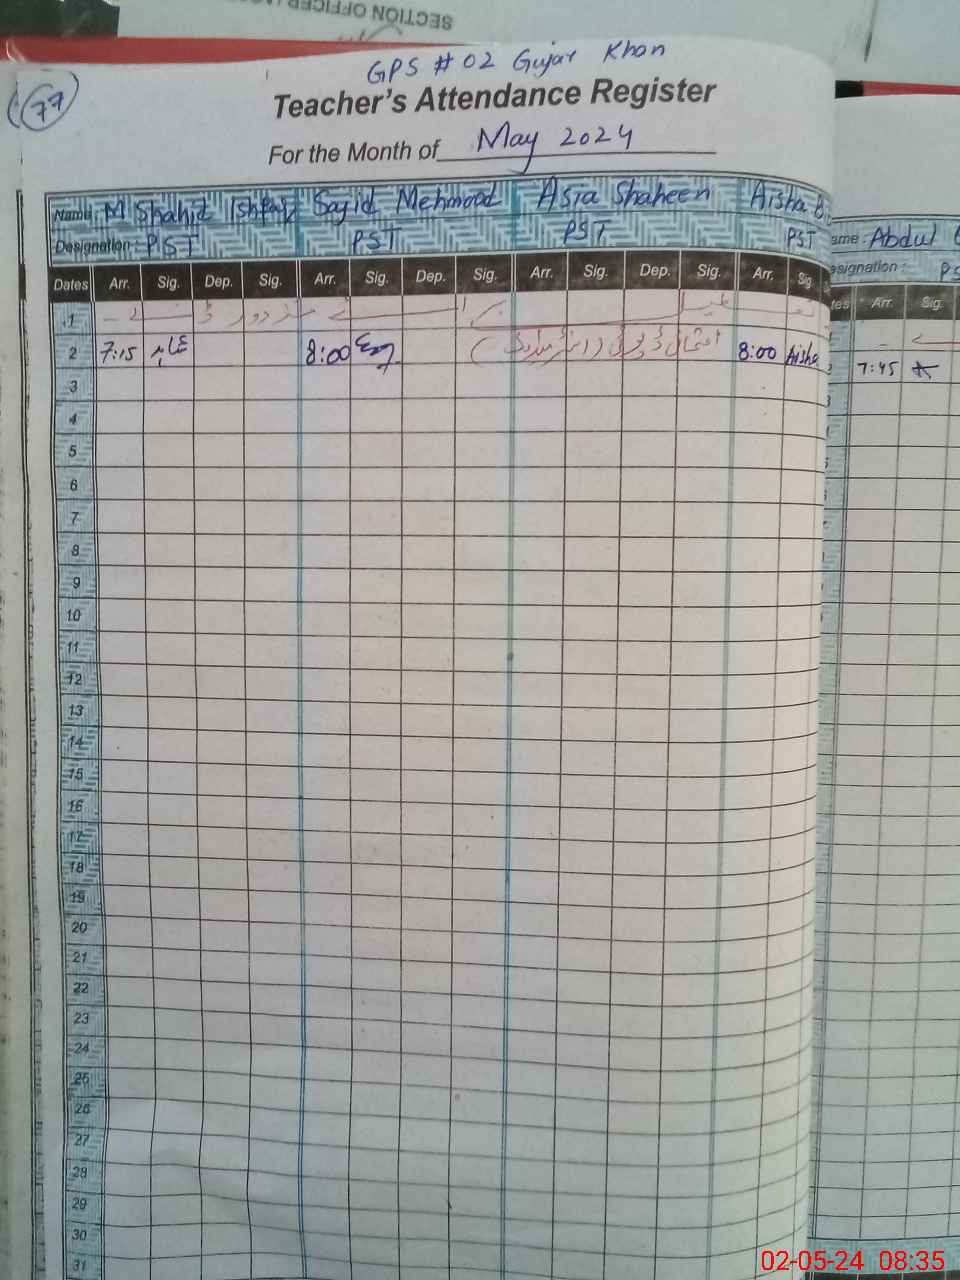 SECTION OFFICER
77
GPS # 02 Gujar Khan
Teacher's Attendance Register
For the Month of May 2024
Name: M Shahid Ishfaq Sajid Mehmood Asia Shaheen Aisha B
Designation: PST PST PST PST
Dates Arr. Sig. Dep. Sig. Arr. Sig. Dep. Sig. Arr. Sig. Dep. Sig. Arr. Sig.
1
2 7:15 8:00 امتحانی ڈیوٹی 8:00 Aisha
3
4
5
6
7
8
9
10
11
12
13
14
15
16
17
18
19
20
21
22
23
24
25
26
27
28
29
30
31
ame: Abdul
signation: PS
tes Arr. Sig.
7:45
02-05-24 08:35